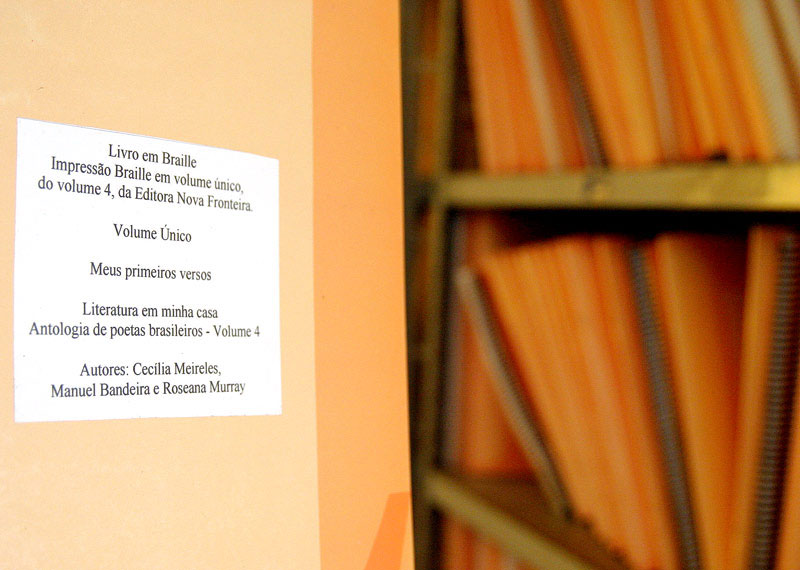 Livro em Braille
Impressão Braille em volume único,
do volume 4, da Editora Nova Fronteira.
Volume Único
Meus primeiros versos
Literatura em minha casa
Antologia de poetas brasileiros - Volume 4
Autores: Cecília Meireles,
Manuel Bandeira e Roseana Murray